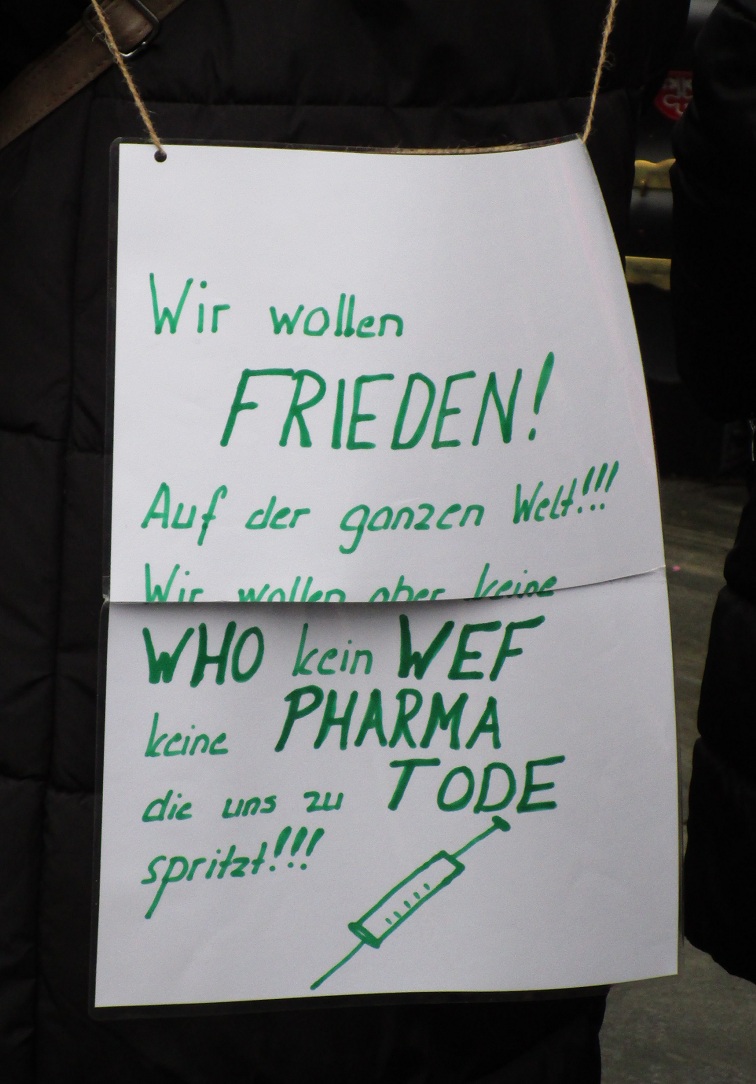 Wir wollen
FRIEDEN!
Auf der ganzen Welt!!!
Wir wollen aber keine
WHO kein WEF
keine PHARMA
die uns zu TODE
spritzt!!!